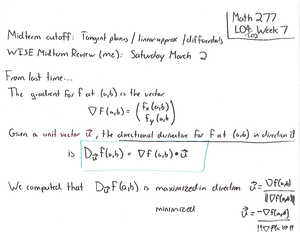 Math 277
L02 Week 7
L02
Midterm cutoff: Tangent plans / linear approx / differentials
WISE Midterm Review (me): Saturday March 2
From last time...
The gradient for f at (a,b) is the vector
∇f(a,b) = (f_x(a,b)
f_y(a,b)
Given a unit vector u⃗, the directional derivative for f at (a,b) in direction u⃗
is D_u⃗ f(a,b) = ∇f(a,b) • u⃗
We computed that D_u⃗ f(a,b) is maximized in direction u⃗ = ∇f(a,b) / ||∇f(a,b)||
minimized u⃗ = -∇f(a,b) / ||∇f(a,b)||